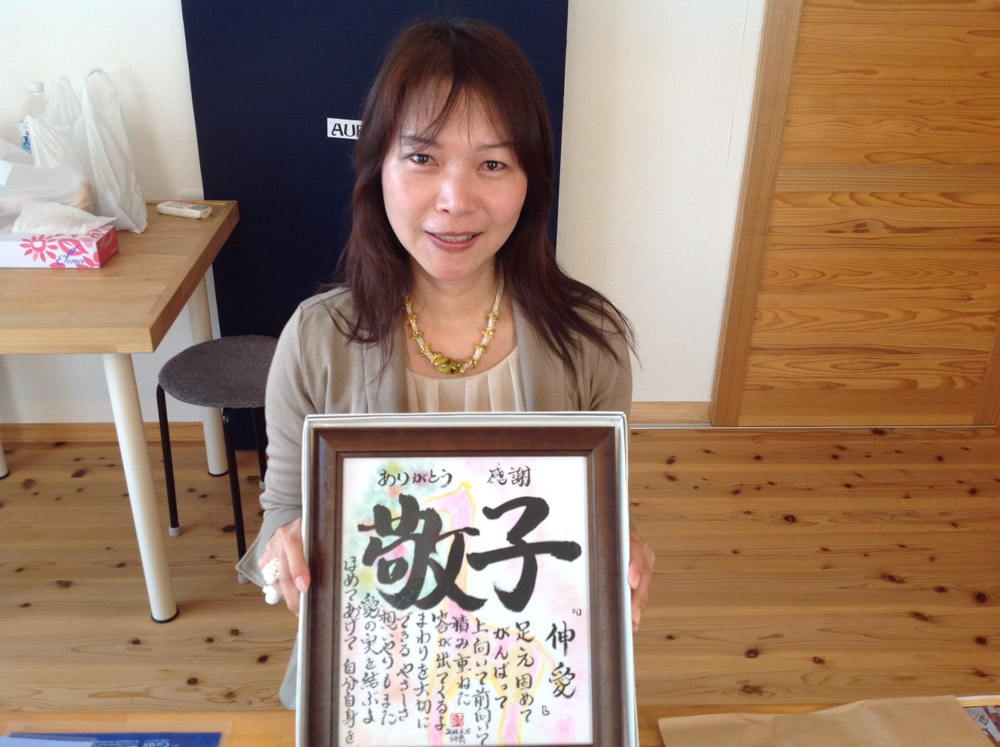 AUB
Elemoe
ありがとう 感謝
敬子
『伸愛』
足元固めて
がんばって
上向いて前向いて
積み重ねた
答が出てくるよ
まわりを大切に
できる やさしさ
想いやりもまた
愛の実を結ぶよ
ほめてあげて 自分自身を